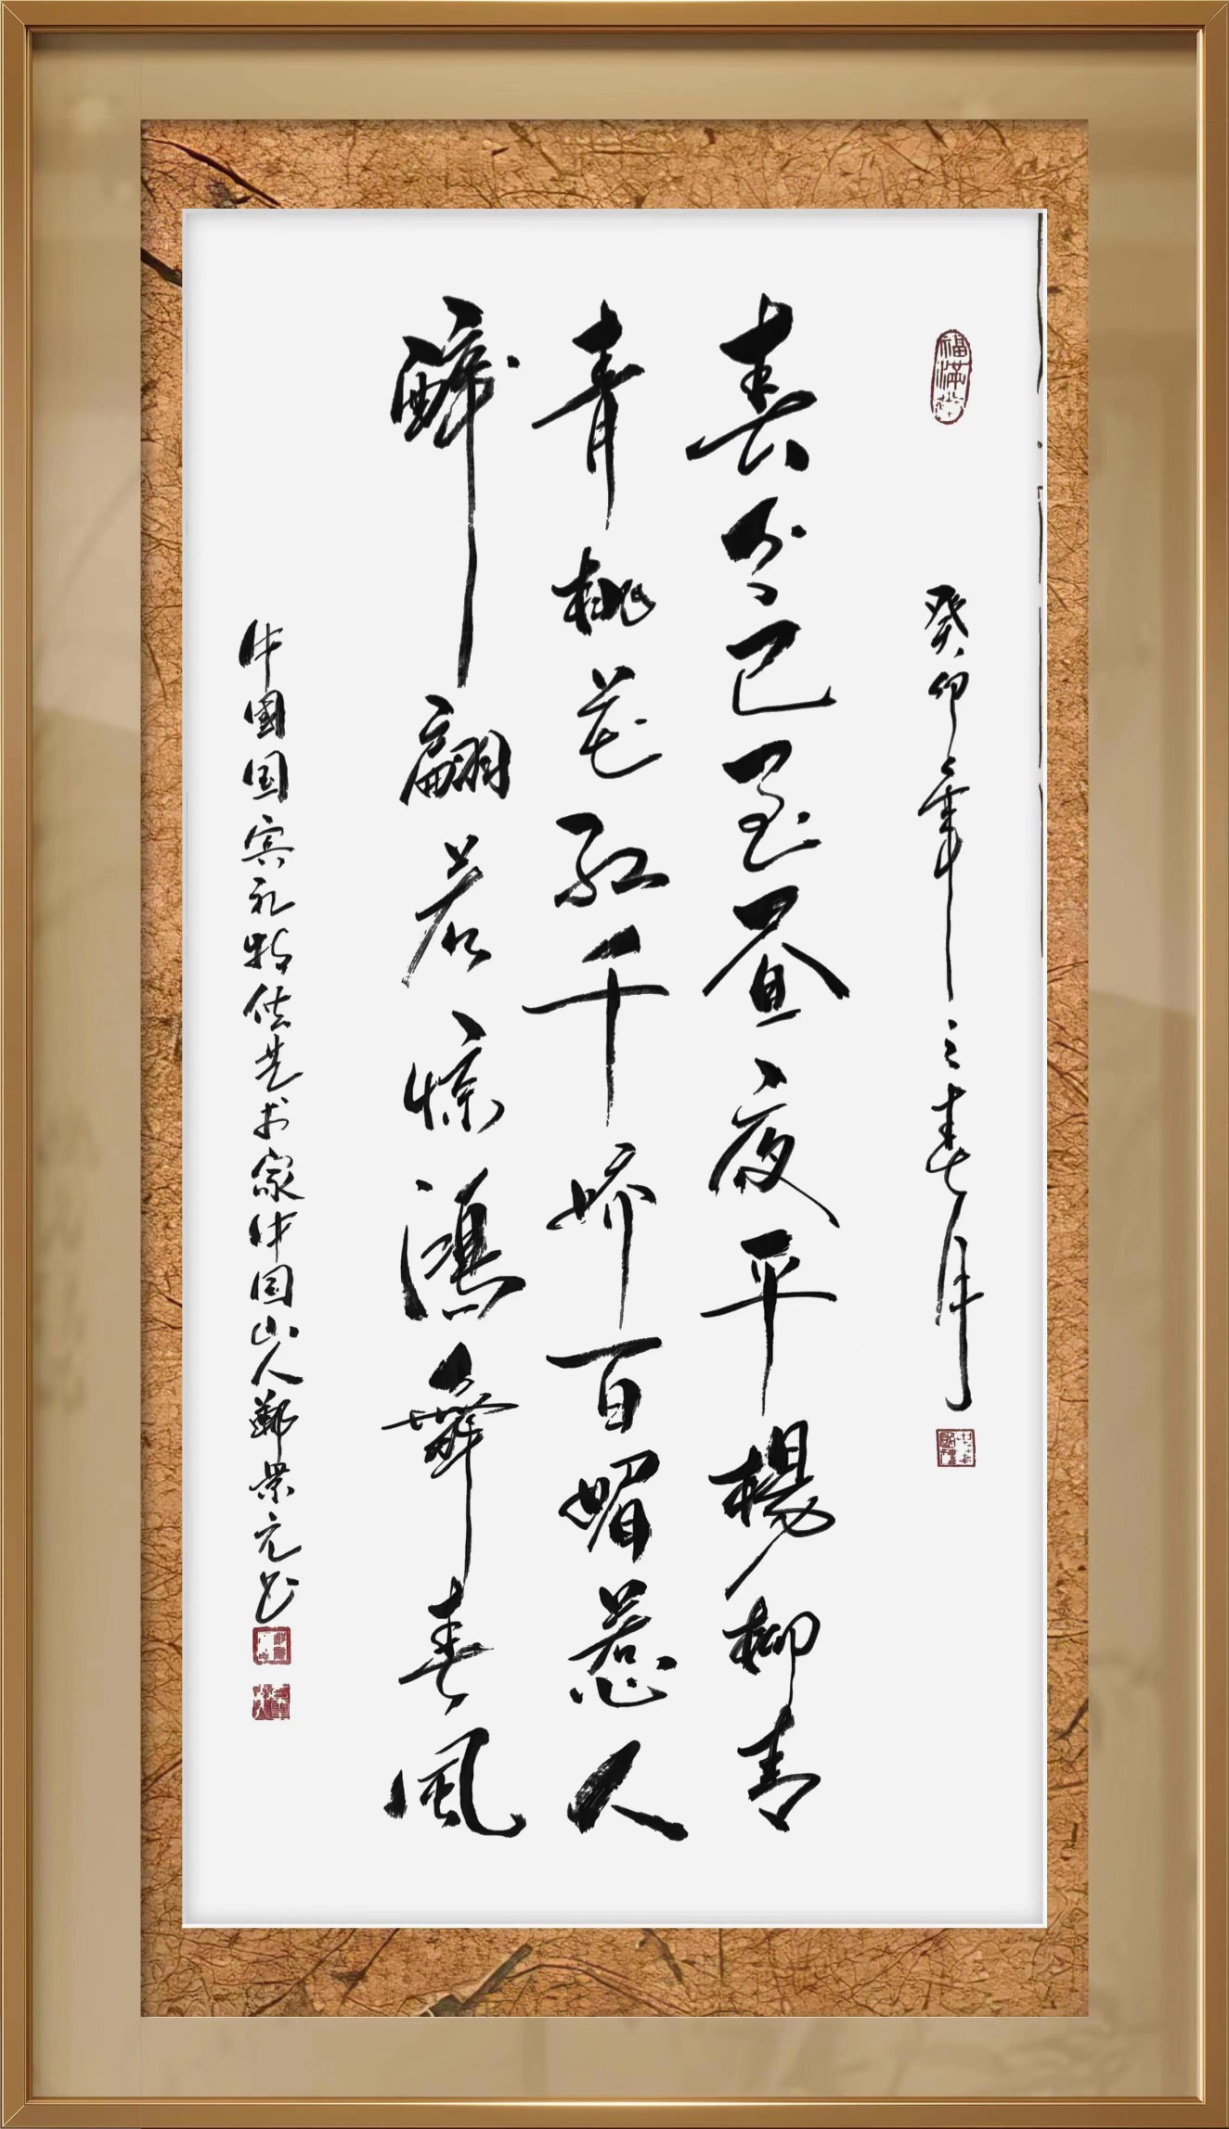 福满华
癸卯年之春月
春分已至昼夜平楊柳青
青桃花红千娇百媚惹人
醉翩若惊鴻舞春风
中國国宾礼特供艺术家中国山人鄭景元书